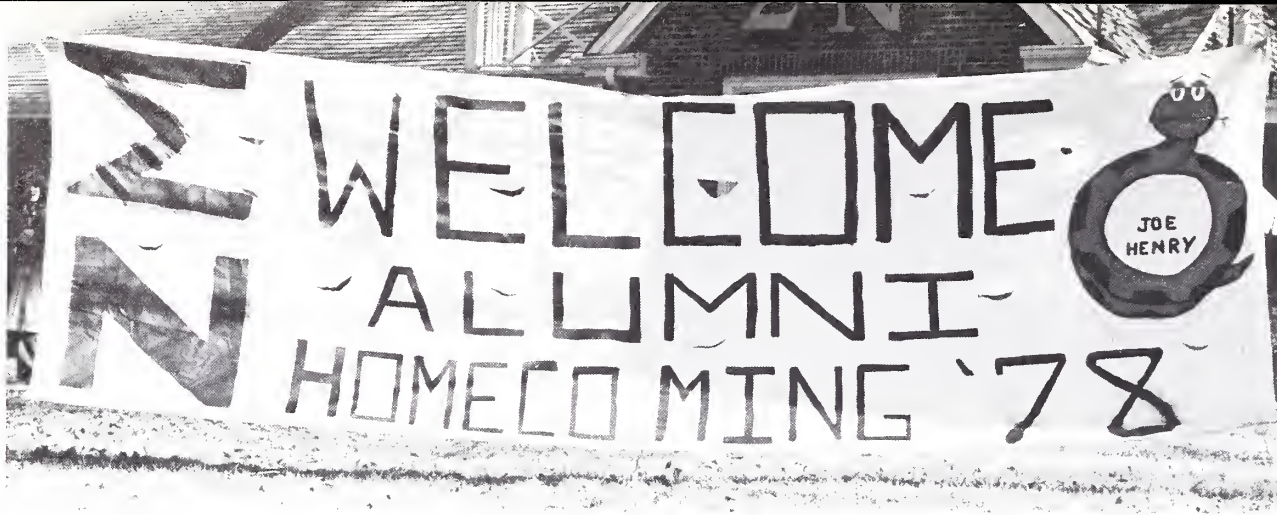 ΣN
Σ
N
WELCOME
ALUMNI
HOMECOMING '78
JOE
HENRY